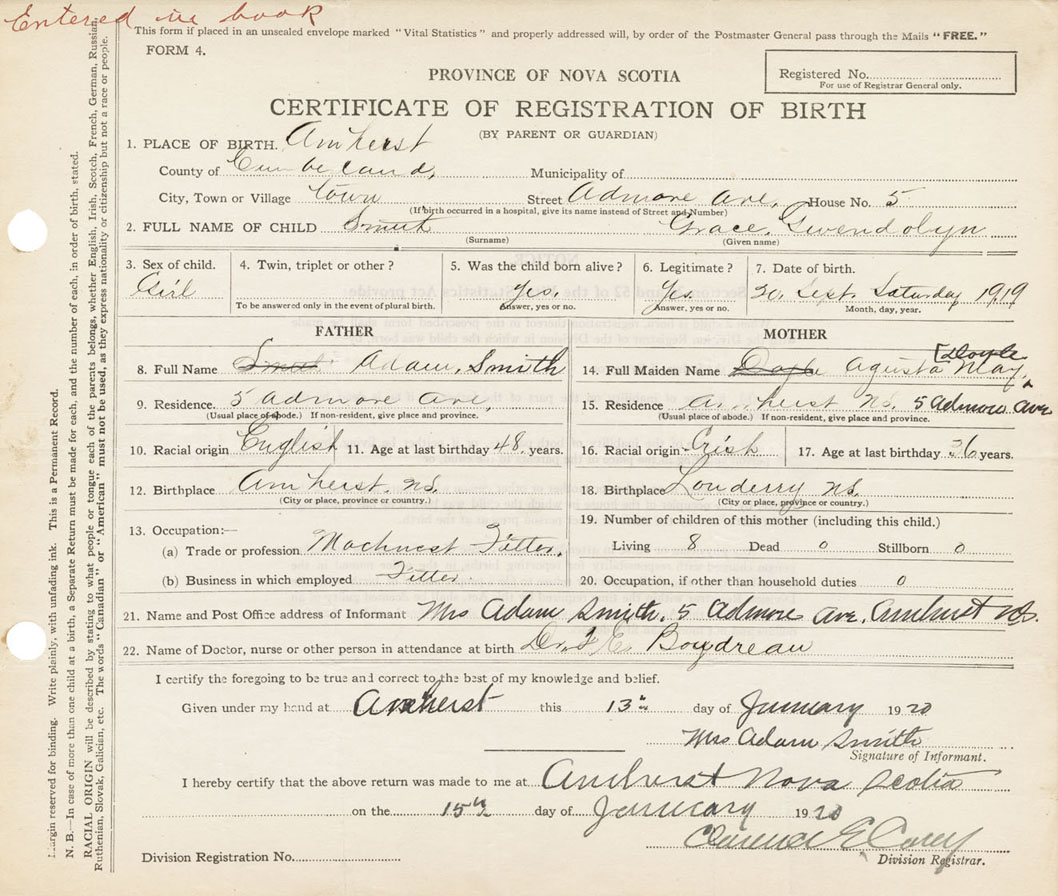 Entered in book
This form if placed in an unsealed envelope marked "Vital Statistics" and properly addressed will, by order of the Postmaster General pass through the Mails "FREE."
FORM 4.
PROVINCE OF NOVA SCOTIA
Registered No.
For use of Registrar General only.
CERTIFICATE OF REGISTRATION OF BIRTH
(BY PARENT OR GUARDIAN)
1. PLACE OF BIRTH. Amherst
County of Cumberland, Municipality of
City, Town or Village town Street Admore Ave, House No. 5
(If birth occurred in a hospital, give its name instead of Street and Number)
2. FULL NAME OF CHILD Smith Grace, Gwendolyn
(Surname) (Given name)
3. Sex of child. 4. Twin, triplet or other? 5. Was the child born alive? 6. Legitimate? 7. Date of birth.
Girl Yes. Yes. 20, Sept. Saturday 1919
To be answered only in the event of plural birth. Answer, yes or no. Answer, yes or no. Month, day, year.
FATHER MOTHER
8. Full Name Adam, Smith
14. Full Maiden Name Agusta May, Doyle
9. Residence. 5 Admore Ave,
(Usual place of abode.) If non-resident, give place and province.
15. Residence Amherst NS. 5 Admore Ave
(Usual place of abode.) If non-resident, give place and province.
10. Racial origin English 11. Age at last birthday 48 years.
16. Racial origin Irish 17. Age at last birthday 36 years.
12. Birthplace Amherst. NS.
(City or place, province or country.)
18. Birthplace Londerry NS.
(City or place, province or country.)
13. Occupation:—
(a) Trade or profession Machnest Fitter.
(b) Business in which employed Fitter
19. Number of children of this mother (including this child.)
Living 8 Dead 0 Stillborn 0
20. Occupation, if other than household duties 0
21. Name and Post Office address of Informant Mrs Adam Smith, 5 Admore Ave, Amhurst NS.
22. Name of Doctor, nurse or other person in attendance at birth Dr. F E Boudreau
I certify the foregoing to be true and correct to the best of my knowledge and belief.
Given under my hand at Amherst this 13th day of January 1920
Mrs Adam Smith
Signature of Informant.
I hereby certify that the above return was made to me at Amherst Nova Scotia
on the 15th day of January 1920
Clarence E Casey
Division Registration No. Division Registrar.
Margin reserved for binding. Write plainly, with unfading ink. This is a Permanent Record.
N. B.—In case of more than one child at a birth, a Separate Return must be made for each, and the number of each, in order of birth, stated.
RACIAL ORIGIN will be described by stating to what people or tongue each of the parents belongs, whether English, Irish, Scotch, French, German, Russian,
Ruthenian, Slovak, Galician, etc. The words "Canadian" or "American" must not be used, as they express nationality or citizenship but not a race or people.